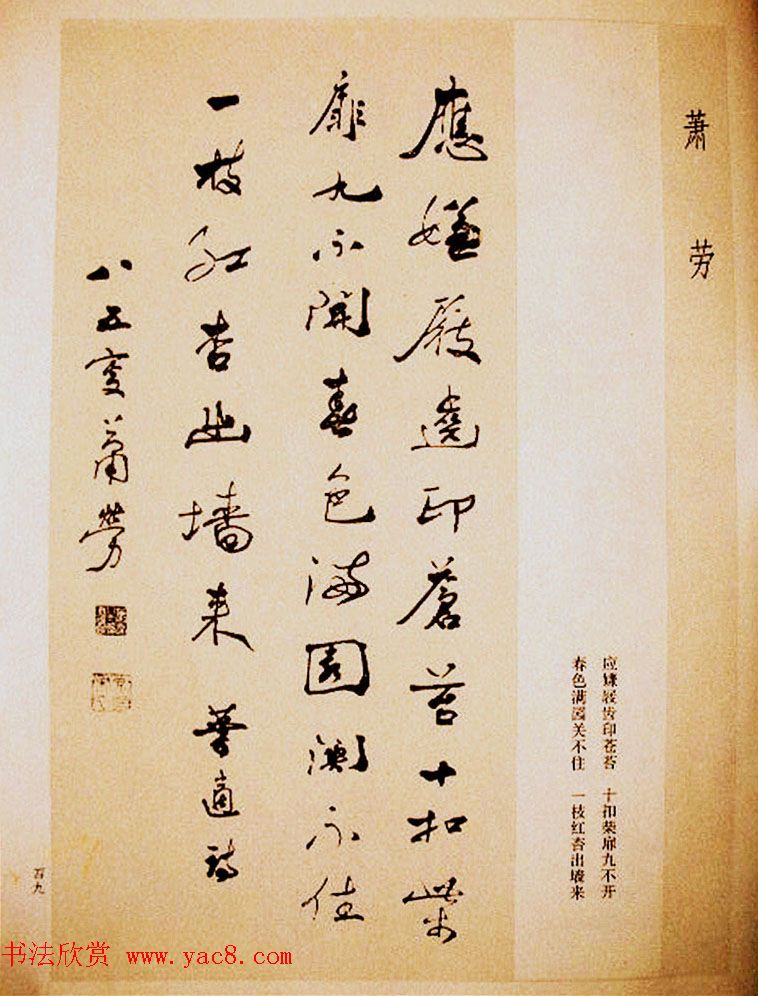 萧劳
应嫌屐齿印苍苔 十扣柴扉九不开
春色满园关不住 一枝红杏出墙来
應嫌屐遶印蒼苔十扣柴
扉九不開春色滿園關不住
一枝紅杏出墻來 葉適詩
八五叟蕭勞
百九
书法欣赏 www.yac8.com